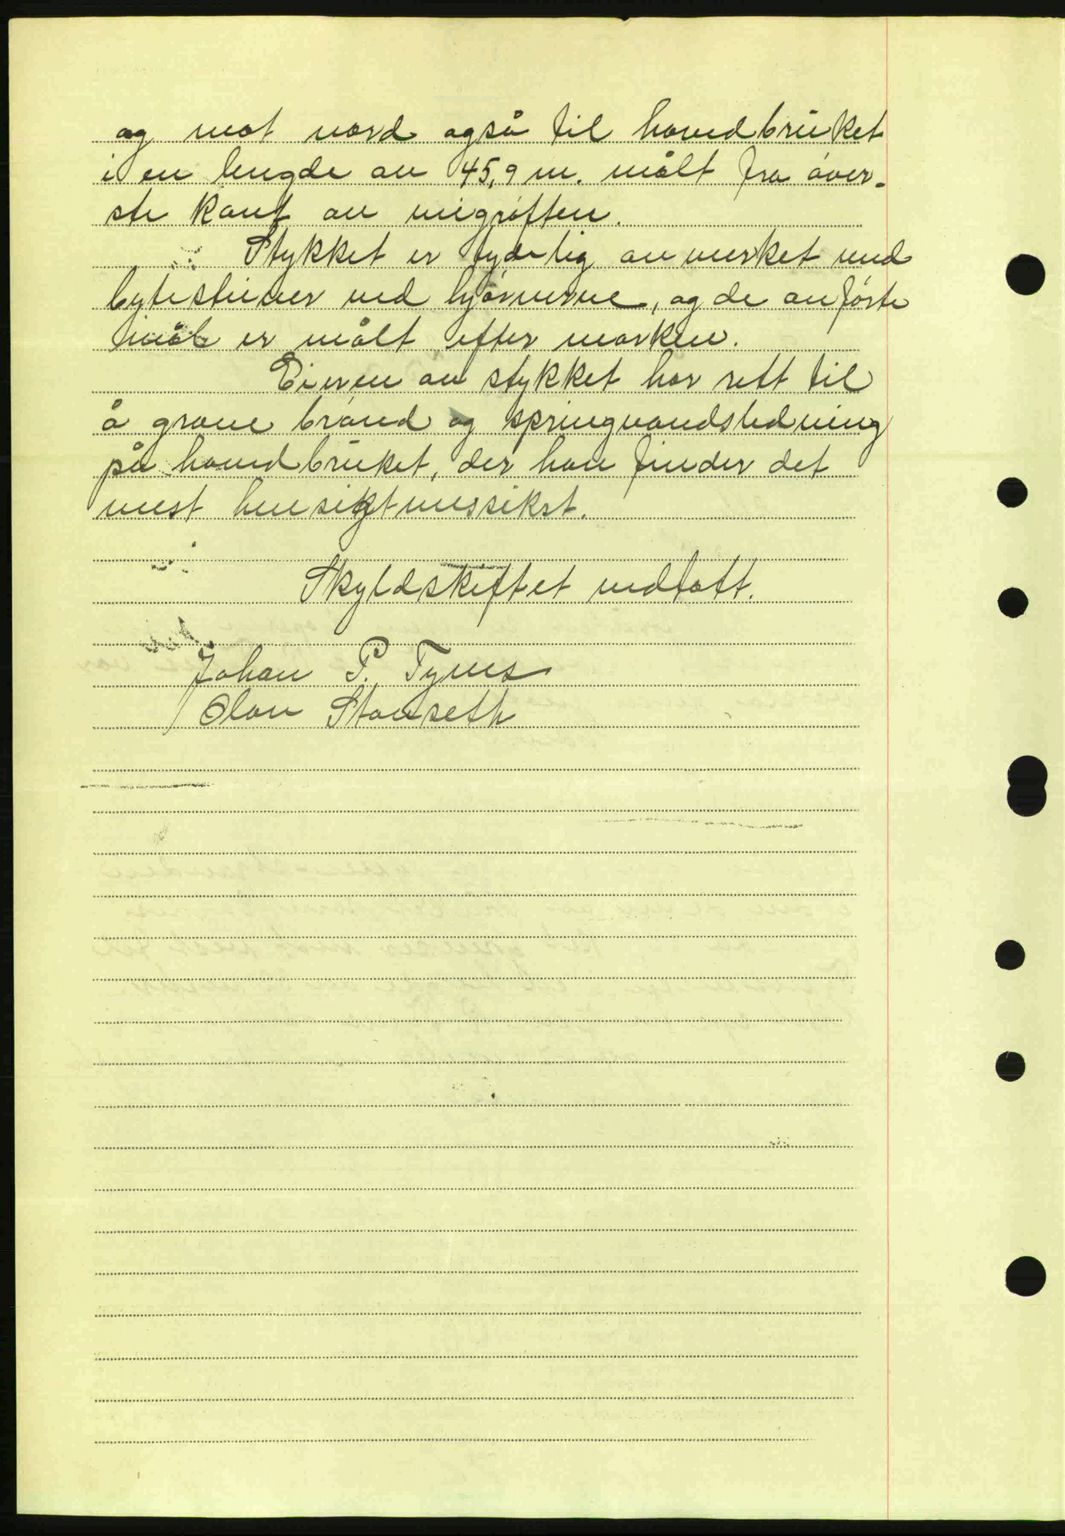 og mot nord også til hovedbruket
i en lengde av 45,9 m. målt fra över-
ste kant av vegröften.
Stykket er tydelig avmerket med
bytesteiner ved hjørnerne, og de anførte
mål er målt efter marken.
Eieren av stykket har rett til
å grave brönd og springvandsledning
på hovedbruket, der han finder det
mest hensigtmessikst.
Skyldskiftet vedtatt.
Johan P. Tynes
Olav Stavseth